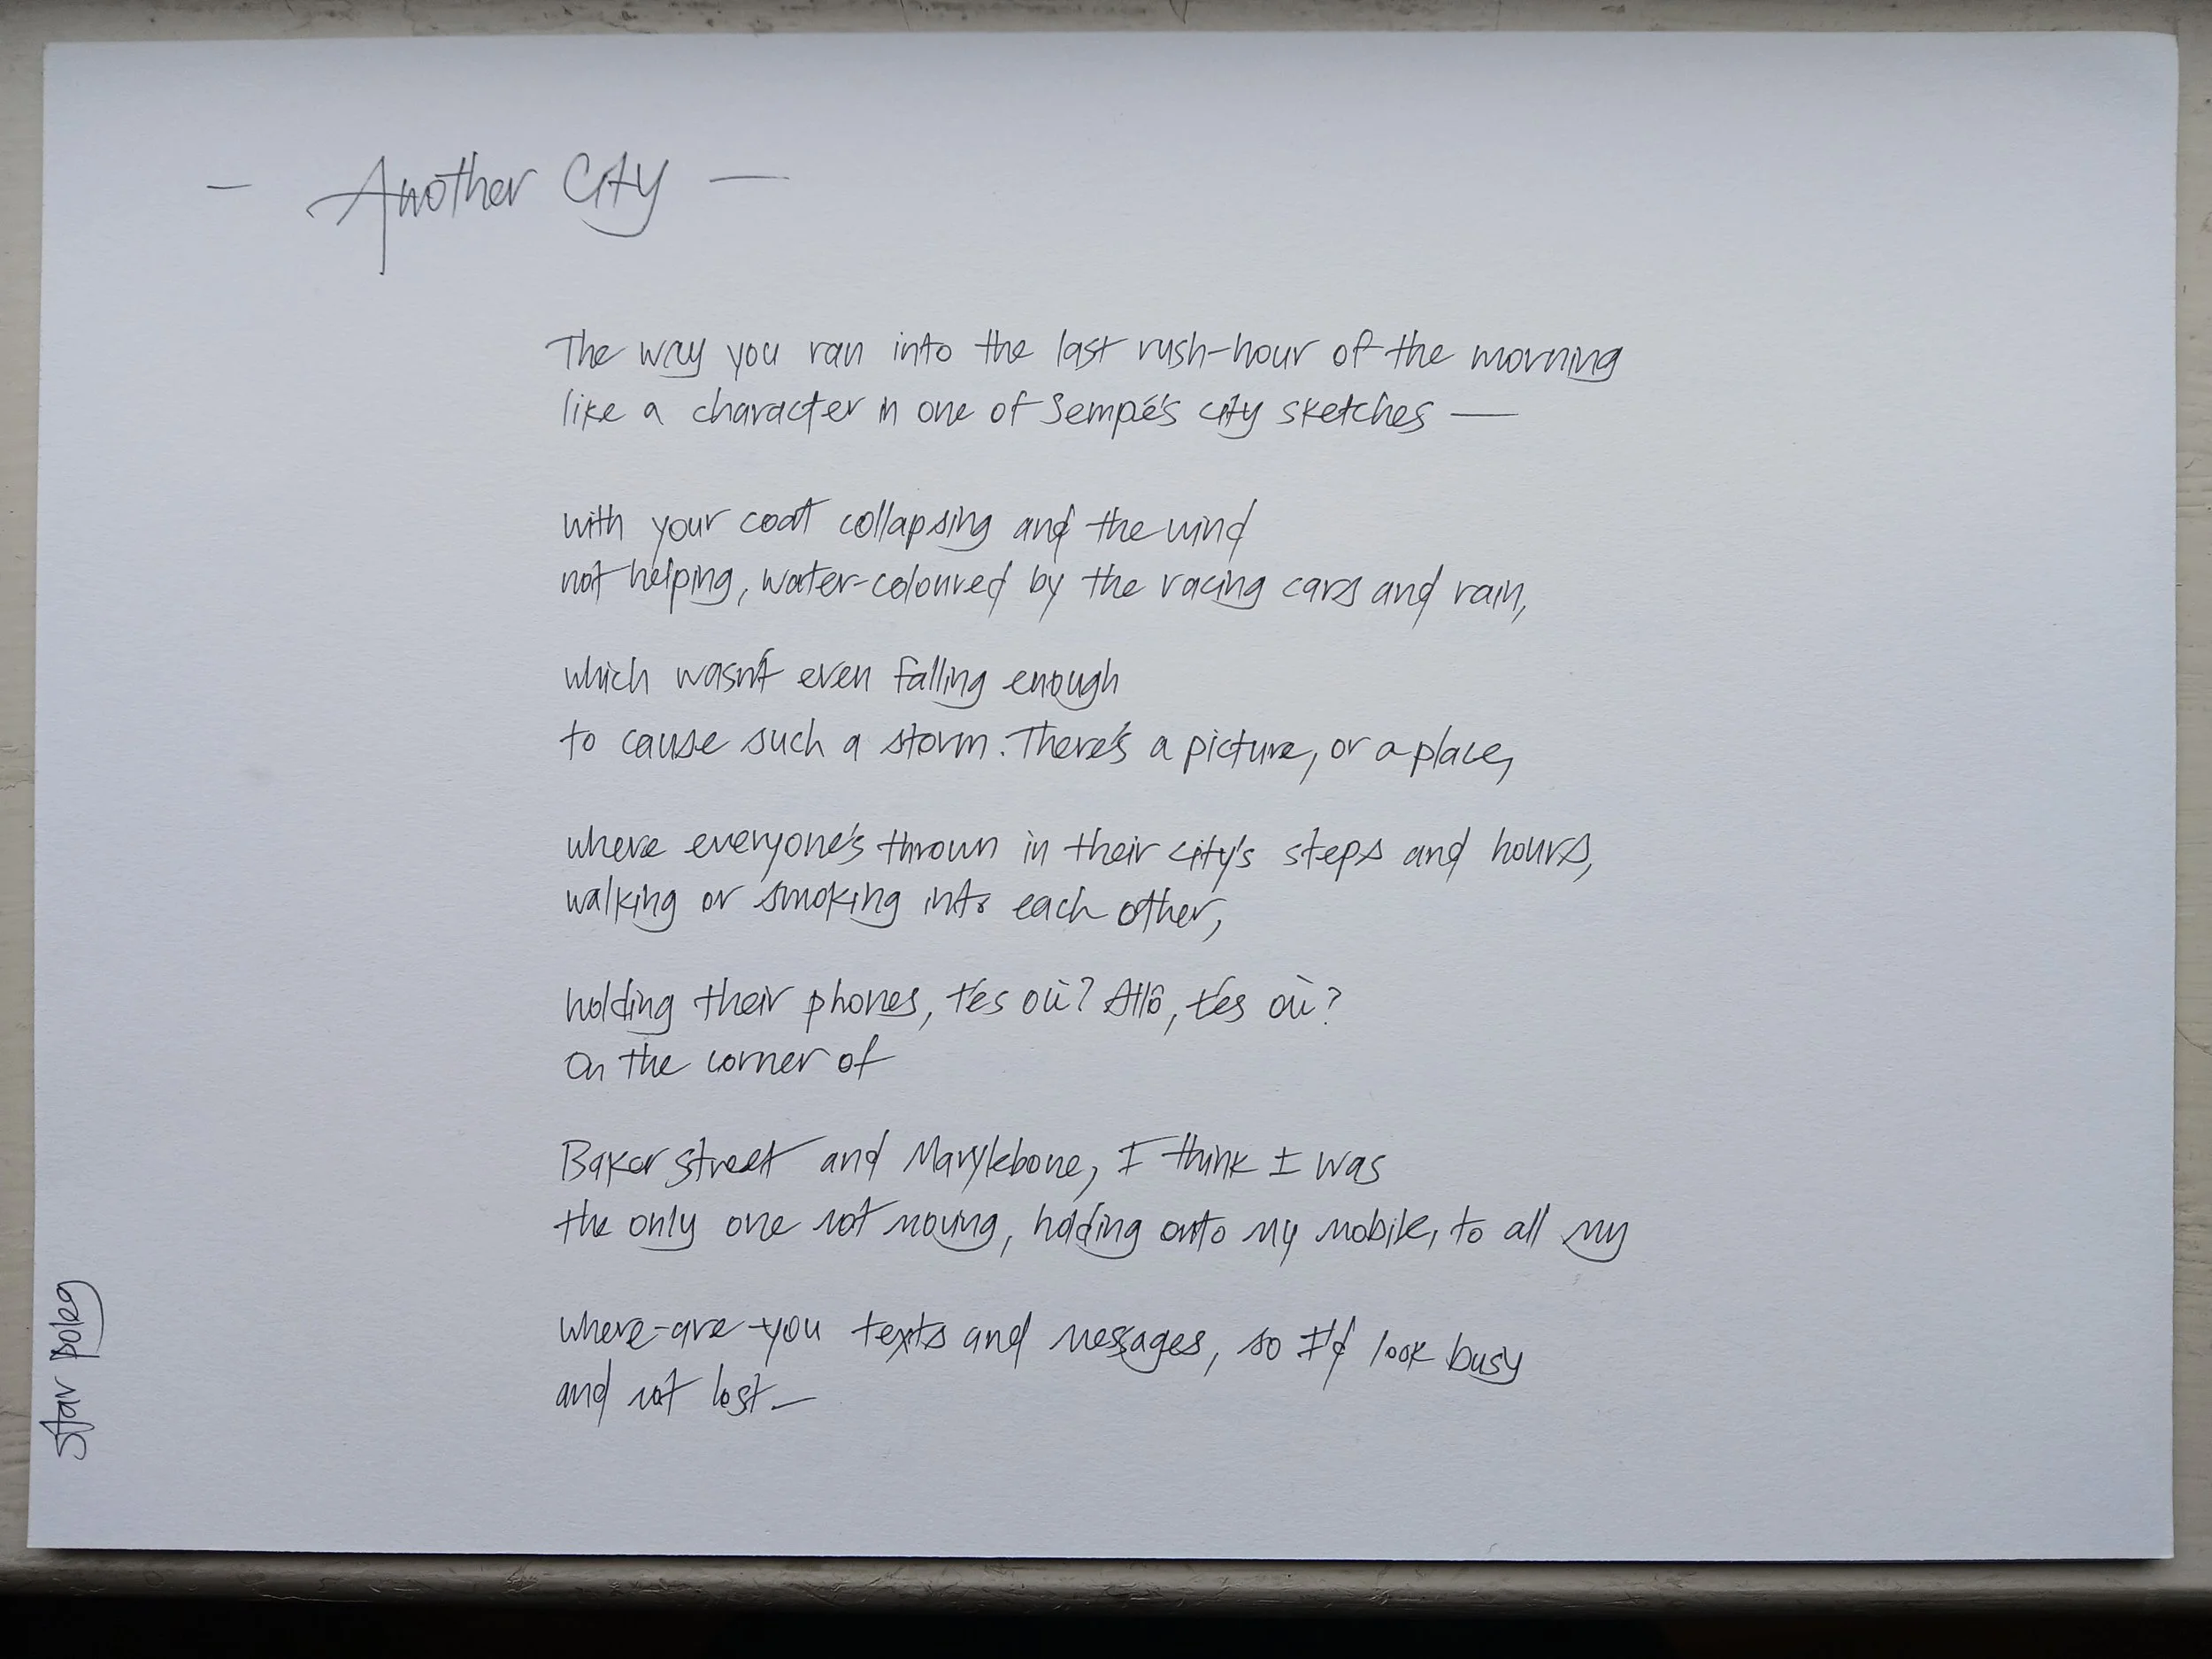 — Another City —
The way you ran into the last rush-hour of the morning
like a character in one of Sempé's city sketches —
with your coat collapsing and the wind
not helping, water-coloured by the racing cars and rain,
which wasn't even falling enough
to cause such a storm. There's a picture, or a place,
where everyone's thrown in their city's steps and hours,
walking or smoking into each other,
holding their phones, t'es où? Allô, t'es où?
On the corner of
Baker street and Marylebone, I think I was
the only one not moving, holding onto my mobile, to all my
where-are-you texts and messages, so I'd look busy
and not lost —
Stav Poleg